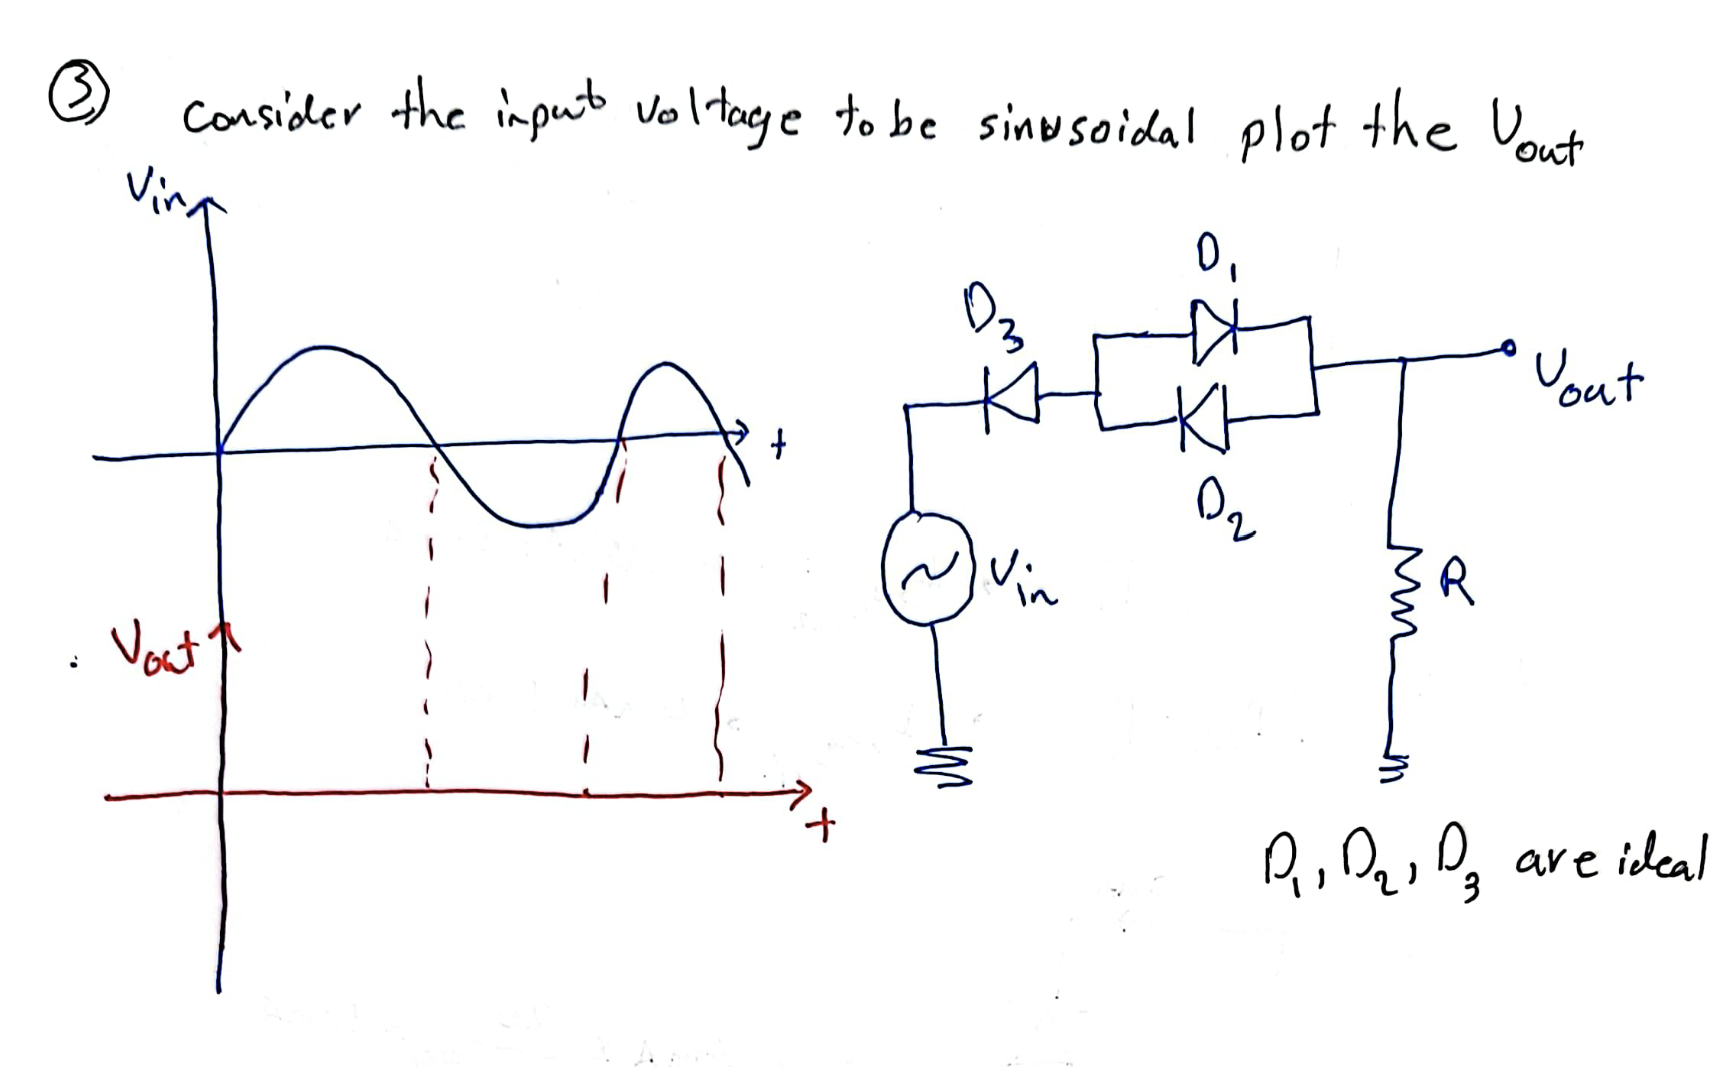 ③ consider the input voltage to be sinusoidal plot the Vout
Vin
t
Vout
t
D1
D3
Vout
D2
Vin
R
D1, D2, D3 are ideal